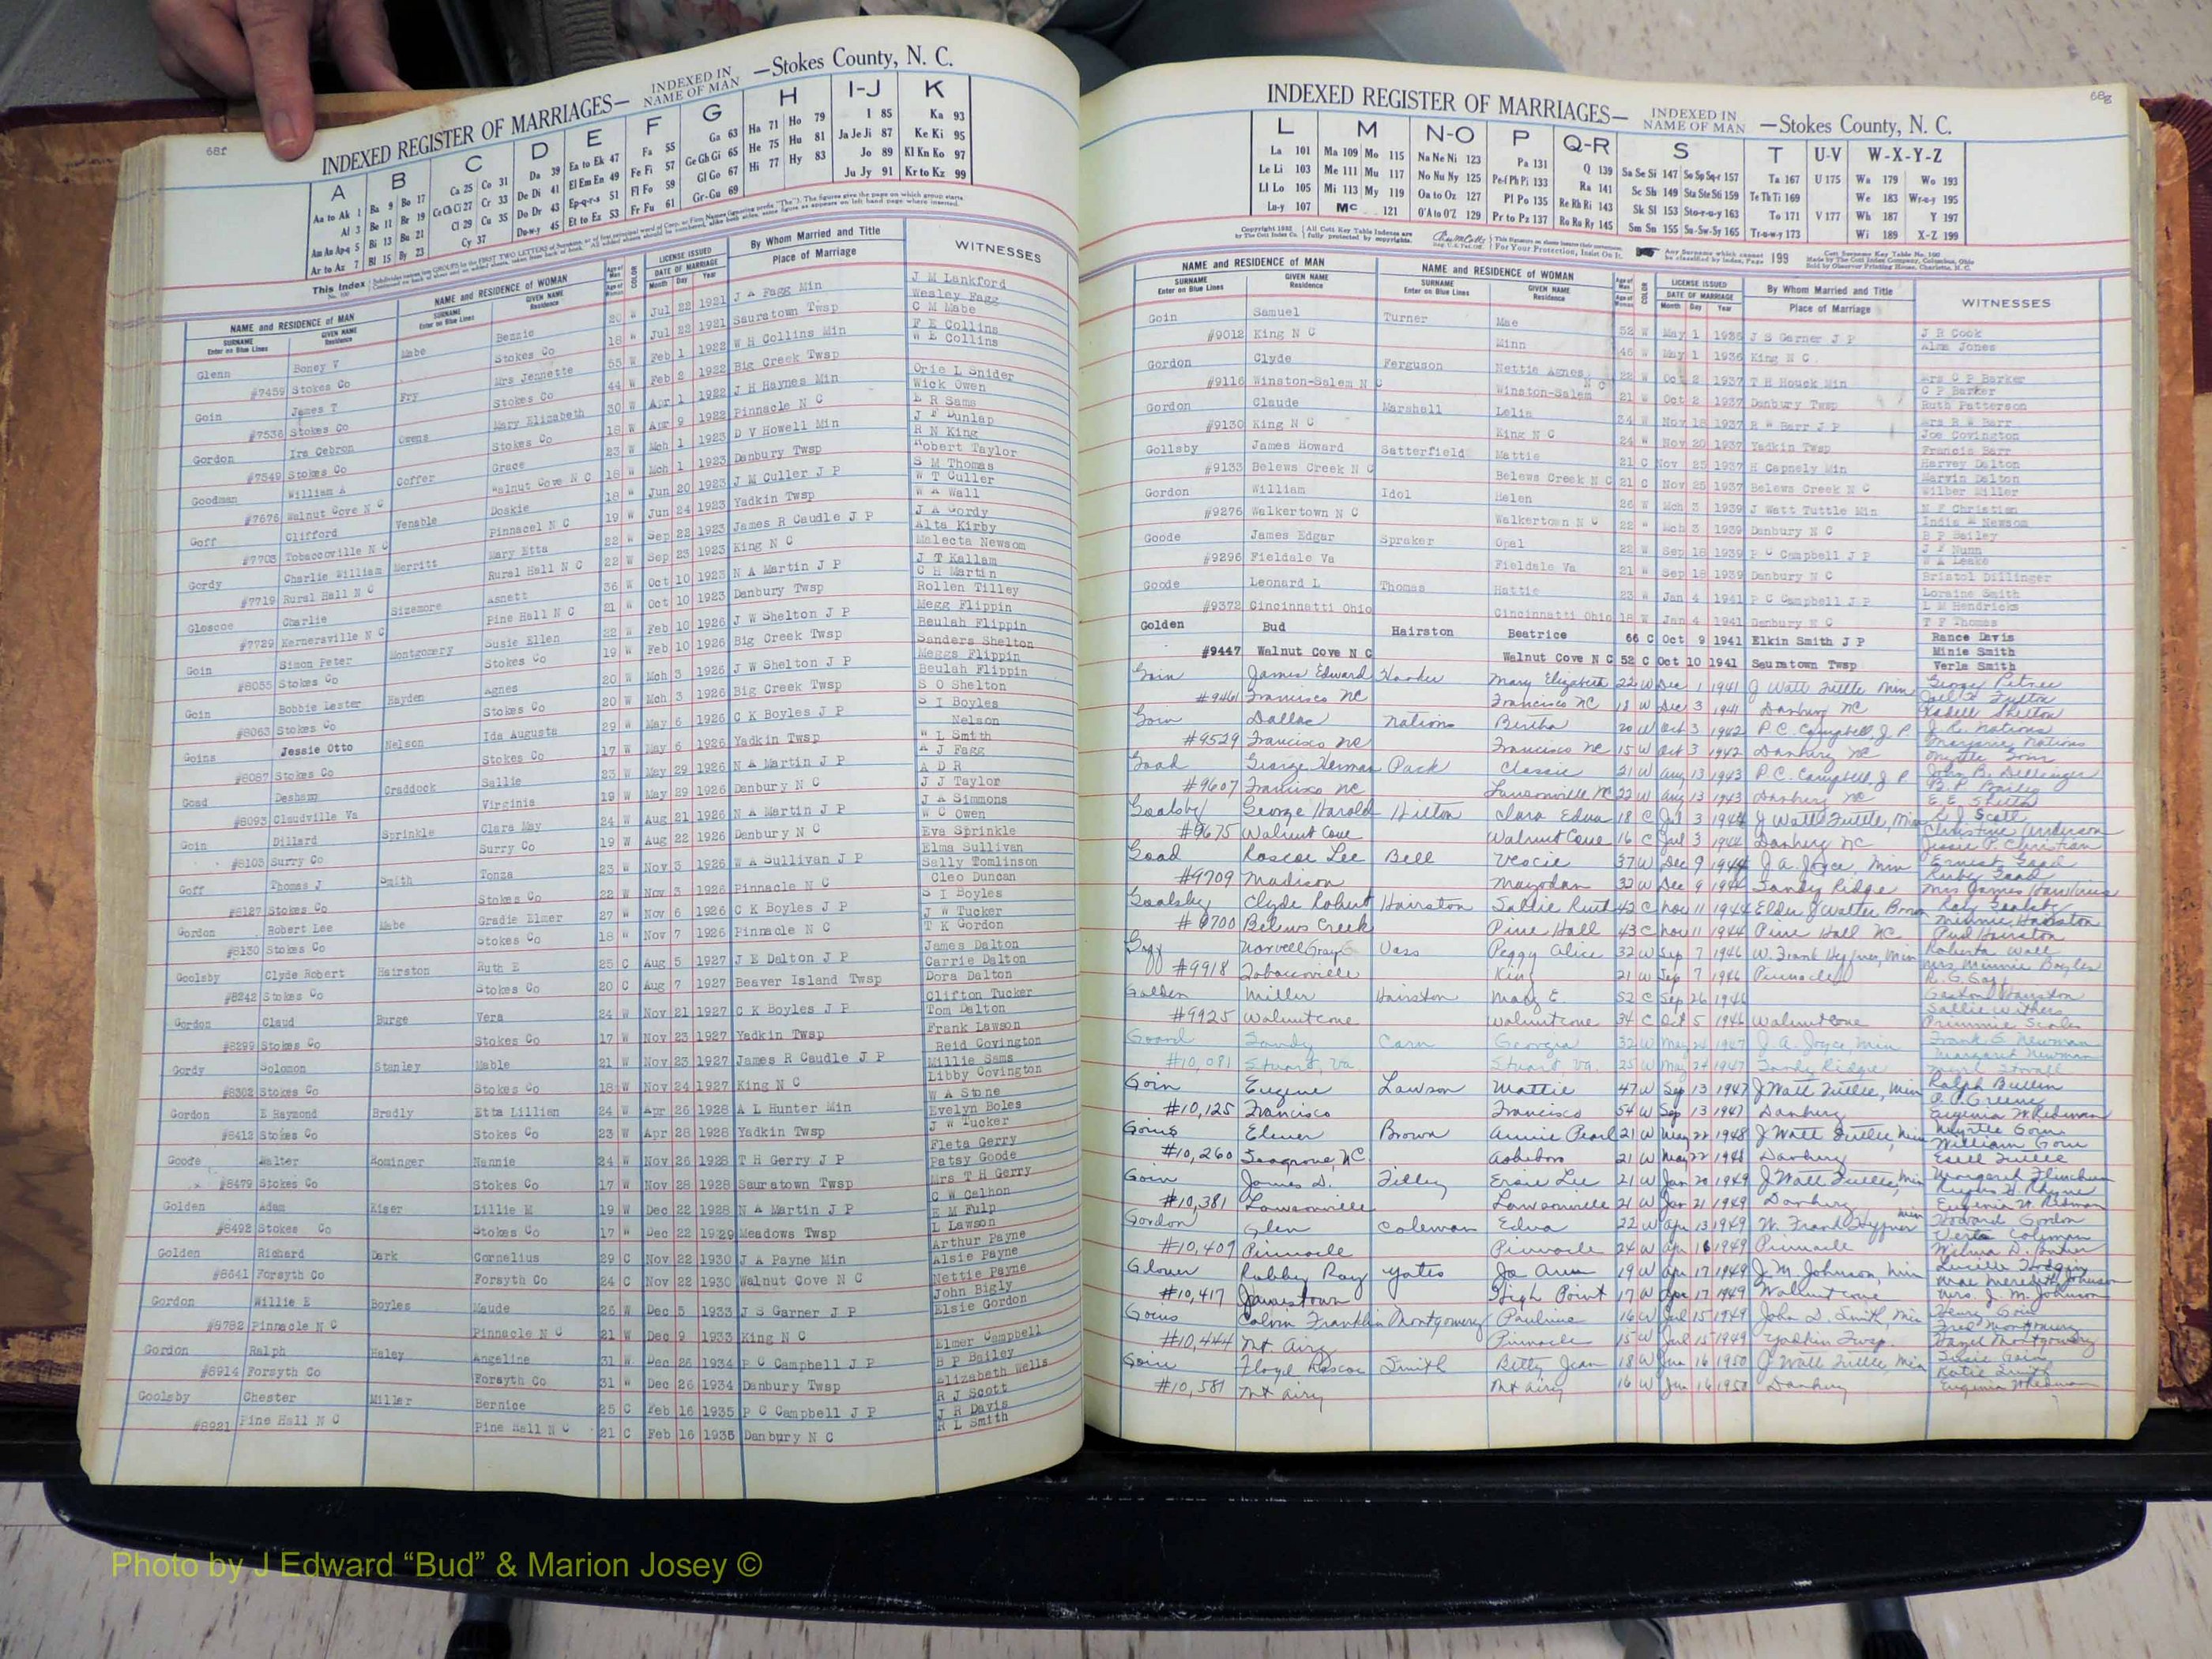 68f
INDEXED REGISTER OF MARRIAGES— INDEXED IN NAME OF MAN —Stokes County, N. C.
A B C D E F G H I-J K
Aa to Ak 1 Ba 9 Bo 17 Ca 25 Co 31 Da 39 Ea to Ek 47 Fa 55 Ga 63 Ha 71 Ho 79 I 85 Ka 93
Al 3 Be 11 Br 19 Ce Ch Ci 27 Cr 33 De Di 41 El Em En 49 Fe Fi 57 Ge Gh Gi 65 He 75 Hu 81 Ja Je Ji 87 Ke Ki 95
Am An Ap-q 5 Bi 13 Bu 21 Cl 29 Cu 35 Do Dr 43 Ep-q-r-s 51 Fl Fo 59 Gl Go 67 Hi 77 Hy 83 Jo 89 Kl Kn Ko 97
Ar to Az 7 Bl 15 By 23 Cy 37 Du-w-y 45 Et to Ez 53 Fr Fu 61 Gr-Gu 69 Ju Jy 91 Kr to Kz 99
NAME and RESIDENCE OF MAN NAME and RESIDENCE OF WOMAN LICENSE ISSUED By Whom Married and Title WITNESSES
SURNAME Enter on Blue Lines GIVEN NAME Residence SURNAME Enter on Blue Lines GIVEN NAME Residence Age of Man Age of Woman COLOR DATE OF MARRIAGE Month Day Year Place of Marriage
Glenn Boney V Mabe Bezzie 20 W Jul 22 1921 J A Fagg Min J M Lankford
Wesley Fagg
#7459 Stokes Co Stokes Co 18 W Jul 22 1921 Sauratown Twsp C M Mabe
Goin James T Fry Mrs Jennette 55 W Feb 1 1922 W H Collins Min F E Collins
W E Collins
#7536 Stokes Co Stokes Co 44 W Feb 2 1922 Big Creek Twsp Orie L Snider
Gordon Ira Cebron Owens Mary Elizabeth 30 W Apr 1 1922 J H Haynes Min Wick Owen
E R Sams
#7549 Stokes Co Stokes Co 18 W Apr 9 1922 Pinnacle N C J F Dunlap
Goodman William A Coffer Grace 23 W Mch 1 1923 D V Howell Min R N King
Robert Taylor
#7676 Walnut Cove N C Walnut Cove N C 18 W Mch 1 1923 Danbury Twsp S M Thomas
Goff Clifford Venable Doskie 18 W Jun 20 1923 J M Culler J P W T Culler
W A Wall
#7703 Tobaccoville N C Pinnacel N C 19 W Jun 24 1923 Yadkin Twsp J A Gordy
Gordy Charlie William Merritt Mary Etta 22 W Sep 22 1923 James R Caudle J P Alta Kirby
Malecta Newsom
#7719 Rural Hall N C Rural Hall N C 22 W Sep 23 1923 King N C J T Kallam
Gloscoe Charlie Sizemore Asnett 36 W Oct 10 1923 N A Martin J P C H Martin
Rollen Tilley
#7729 Kernersville N C Pine Hall N C 21 W Oct 10 1923 Danbury Twsp Megg Flippin
Goin Simon Peter Montgomery Susie Ellen 22 W Feb 10 1926 J W Shelton J P Beulah Flippin
Sanders Shelton
#8055 Stokes Co Stokes Co 19 W Feb 10 1926 Big Creek Twsp Meggs Flippin
Goin Bobbie Lester Hayden Agnes 20 W Mch 3 1926 J W Shelton J P Beulah Flippin
S O Shelton
#8063 Stokes Co Stokes Co 20 W Mch 3 1926 Big Creek Twsp S I Boyles
Goins Jessie Otto Nelson Ida Augusta 29 W May 6 1926 C K Boyles J P Nelson
W L Smith
#8087 Stokes Co Stokes Co 17 W May 6 1926 Yadkin Twsp A J Fagg
Goad Desham Craddock Sallie 23 W May 29 1926 N A Martin J P A D R
J J Taylor
#8093 Claudville Va Virginia 19 W May 29 1926 Danbury N C J A Simmons
Goin Dillard Sprinkle Clara May 24 W Aug 21 1926 N A Martin J P W C Owen
Eva Sprinkle
#8103 Surry Co Surry Co 19 W Aug 22 1926 Danbury N C Elma Sullivan
Goff Thomas J Smith Tonza 23 W Nov 3 1926 W A Sullivan J P Sally Tomlinson
Cleo Duncan
#8127 Stokes Co Stokes Co 22 W Nov 3 1926 Pinnacle N C S I Boyles
Gordon Robert Lee Mabe Gradie Elmer 27 W Nov 6 1926 C K Boyles J P J W Tucker
T K Gordon
#8130 Stokes Co Stokes Co 18 W Nov 7 1926 Pinnacle N C James Dalton
Goolsby Clyde Robert Hairston Ruth E 25 C Aug 5 1927 J E Dalton J P Carrie Dalton
Dora Dalton
#8242 Stokes Co Stokes Co 20 C Aug 7 1927 Beaver Island Twsp Clifton Tucker
Gordon Claud Burge Vera 24 W Nov 21 1927 C K Boyles J P Tom Dalton
Frank Lawson
#8299 Stokes Co Stokes Co 17 W Nov 23 1927 Yadkin Twsp Reid Covington
Gordy Solomon Stanley Mable 21 W Nov 23 1927 James R Caudle J P Millie Sams
Libby Covington
#8302 Stokes Co Stokes Co 18 W Nov 24 1927 King N C W A Stone
Gordon E Raymond Bradly Etta Lillian 24 W Apr 26 1928 A L Hunter Min Evelyn Boles
J W Tucker
#8412 Stokes Co Stokes Co 23 W Apr 28 1928 Yadkin Twsp Fleta Gerry
Goode Walter Rominger Nannie 24 W Nov 26 1928 T H Gerry J P Patsy Goode
Mrs T H Gerry
#8479 Stokes Co Stokes Co 17 W Nov 28 1928 Sauratown Twsp C W Calhon
Golden Adam Kiser Lillie M 19 W Dec 22 1928 N A Martin J P E M Fulp
L Lawson
#8492 Stokes Co Stokes Co 17 W Dec 22 1929 Meadows Twsp Arthur Payne
Golden Richard Dark Cornelius 29 C Nov 22 1930 J A Payne Min Alsie Payne
Nettie Payne
#8641 Forsyth Co Forsyth Co 24 C Nov 22 1930 Walnut Cove N C John Bigly
Gordon Willie E Boyles Maude 26 W Dec 5 1933 J S Garner J P Elsie Gordon
#8782 Pinnacle N C Pinnacle N C 21 W Dec 9 1933 King N C Elmer Campbell
Gordon Ralph Haley Angeline 31 W Dec 26 1934 P C Campbell J P B P Bailey
Elizabeth Wells
#8914 Forsyth Co Forsyth Co 31 W Dec 26 1934 Danbury Twsp R J Scott
Goolsby Chester Miller Bernice 25 C Feb 16 1935 P C Campbell J P J R Davis
R L Smith
#8921 Pine Hall N C Pine Hall N C 21 C Feb 16 1935 Danbury N C
68g
INDEXED REGISTER OF MARRIAGES— INDEXED IN NAME OF MAN —Stokes County, N. C.
L M N-O P Q-R S T U-V W-X-Y-Z
La 101 Ma 109 Mo 115 Na Ne Ni 123 Pa 131 Q 139 Sa Se Si 147 So Sp Sq-r 157 Ta 167 U 175 Wa 179 Wo 193
Le Li 103 Me 111 Mu 117 No Nu Ny 125 Pe-f Ph Pi 133 Ra 141 Sc Sh 149 Sta Ste Sti 159 Te Th Ti 169 We 183 Wr-u-y 195
Ll Lo 105 Mi 113 My 119 Oa to Oz 127 Pl Po 135 Re Rh Ri 143 Sk Sl 153 Sto-r-u-y 163 To 171 V 177 Wh 187 Y 197
Lu-y 107 Mc 121 O'A to O'Z 129 Pr to Pz 137 Ro Ru Ry 145 Sm Sn 155 Su-Sw-Sy 165 Tr-u-w-y 173 Wi 189 X-Z 199
NAME and RESIDENCE OF MAN NAME and RESIDENCE OF WOMAN LICENSE ISSUED By Whom Married and Title WITNESSES
SURNAME Enter on Blue Lines GIVEN NAME Residence SURNAME Enter on Blue Lines GIVEN NAME Residence Age of Man Age of Woman COLOR DATE OF MARRIAGE Month Day Year Place of Marriage
Goin Samuel Turner Mae 52 W May 1 1936 J S Garner J P J R Cook
Alma Jones
#9012 King N C Minn 46 W May 1 1936 King N C
Gordon Clyde Ferguson Nettie Agnes 22 W Oct 2 1937 T H Houck Min Mrs C P Barker
C P Barker
#9116 Winston-Salem N C Winston-Salem N C 21 W Oct 2 1937 Danbury Twsp Ruth Patterson
Gordon Claude Marshall Lelia 34 W Nov 18 1937 R W Barr J P Mrs R W Barr
Joe Covington
#9130 King N C King N C 24 W Nov 20 1937 Yadkin Twsp Francis Barr
Gollsby James Howard Satterfield Mattie 21 C Nov 25 1937 H Capnely Min Harvey Dalton
Marvin Dalton
#9133 Belews Creek N C Belews Creek N C 21 C Nov 25 1937 Belews Creek N C Wilber Miller
Gordon William Idol Helen 26 W Mch 3 1939 J Watt Tuttle Min N F Christian
India M Newsom
#9276 Walkertown N C Walkertown N C 22 W Mch 3 1939 Danbury N C B P Bailey
Goode James Edgar Spraker Opal 22 W Sep 18 1939 P C Campbell J P J F Nunn
W A Leake
#9296 Fieldale Va Fieldale Va 21 W Sep 18 1939 Danbury N C Bristol Dillinger
Goode Leonard L Thomas Hattie 23 W Jan 4 1941 P C Campbell J P Loraine Smith
L M Hendricks
#9372 Cincinnatti Ohio Cincinnatti Ohio 18 W Jan 4 1941 Danbury N C T F Thomas
Golden Bud Hairston Beatrice 66 C Oct 9 1941 Elkin Smith J P Rance Davis
Minie Smith
#9447 Walnut Cove N C Walnut Cove N C 52 C Oct 10 1941 Sauratown Twsp Verla Smith
Goin James Edward Hooker Mary Elizabeth 22 W Dec 1 1941 J Watt Tuttle Min George Petree
#9461 Francisco NC Francisco NC 18 W Dec 3 1941 Danbury NC Shelton
Goin Dallas Nations Bertha 20 W Oct 3 1942 P.C. Campbell, J.P. J. R. Nations
Nations
#9529 Francisco NC Francisco NC 15 W Oct 3 1942 Danbury NC Myrtle Goin
Goad George Herman Pack Classie 21 W Aug 13 1943 P.C. Campbell J P John B. Dellinger
B. P. Bailey
#9607 Francisco NC Lawsonville NC 22 W Aug 13 1943 Danbury NC
Goolsby George Harold Hilton Clara Edna 18 C Jul 3 1944 J Watt Tuttle, Min Scott
Christine Anderson
#9675 Walnut Cove Walnut Cove 16 C Jul 3 1944 Danbury NC Jessie P. Christian
Goad Roscoe Lee Bell Vercie 37 W Dec 9 1944 J. A. Joyce, Min Ernest Goad
Ruby Goad
#9709 Madison Mayodan 32 W Dec 9 1944 Sandy Ridge Mrs James
Goolsby Clyde Robert Hairston Sallie Ruth 42 C Nov 11 1944 Elder J Walter Brown Ray Goolsby
Minnie Hairston
#9700 Belews Creek Pine Hall 43 C Nov 11 1944 Pine Hall NC Hairston
Norvell Gray Vass Peggy Alice 32 W Sep 7 1946 W. Frank Hyfner, Min Roberta Wall
Mrs Minnie Boyles
#9918 Tobaccoville King 21 W Sep 7 1946 Pinnacle
Golden Miller Hairston Mary E. 52 C Sep 26 1946 Gaston Hairston
Sallie Withers
#9925 Walnut Cove Walnut Cove 34 C Oct 5 1946 Walnut Cove Scales
Goard Sandy Carn Georgia 32 W May 24 1947 J. A. Joyce, Min Frank G. Newman
Margaret Newman
#10,081 Stuart, Va. Stuart Va. 25 W May 24 1947 Sandy Ridge Stovall
Goin Eugene Lawson Mattie 47 W Sep 13 1947 J Watt Tuttle, Min Ralph Bullin
#10,125 Francisco Francisco 54 W Sep 13 1947 Danbury Eugenia W. Redman
Goins Elmer Brown Annie Pearl 21 W May 22 1948 J Watt Tuttle, Min Myrtle Goin
William Goin
#10,260 Seagrove, NC. Asheboro 21 W May 22 1948 Danbury Tuttle
Goin James D. Tilley Ersie Lee 21 W Jan 20 1949 J Watt Tuttle, Min Margaret Flinchum
#10,381 Lawsonville Lawsonville 21 W Jan 21 1949 Danbury Eugenia W. Redman
Gordon Glen Coleman Edna 22 W Apr 13 1949 W. Frank Hyfner Min Howard Gordon
Coleman
#10,409 Pinnacle Pinnacle 24 W Apr 16 1949 Pinnacle
Glover Robby Ray Yates Jo Ann 19 W Apr 17 1949 J. M. Johnson, Min Lucille Hodgin
Mae Meredith Johnson
#10,417 Jamestown High Point 17 W Apr 17 1949 Walnut Cove Mrs. J. M. Johnson
Goins Calvin Franklin Montgomery Pauline 16 W Jul 15 1949 John D. Smith, Min Goins
Montgomery
#10,444 Mt. Airy Pinnacle 15 W Jul 15 1949 Yadkin Twsp. Hazel Montgomery
Goin Floyd Roscoe Smith Betty Jean 18 W Jun 16 1950 J Watt Tuttle, Min Susie Goin
Katie Smith
#10,581 Mt Airy Mt Airy 16 W Jun 16 1950 Danbury Eugenia W. Redman
Photo by J Edward “Bud” & Marion Josey ©